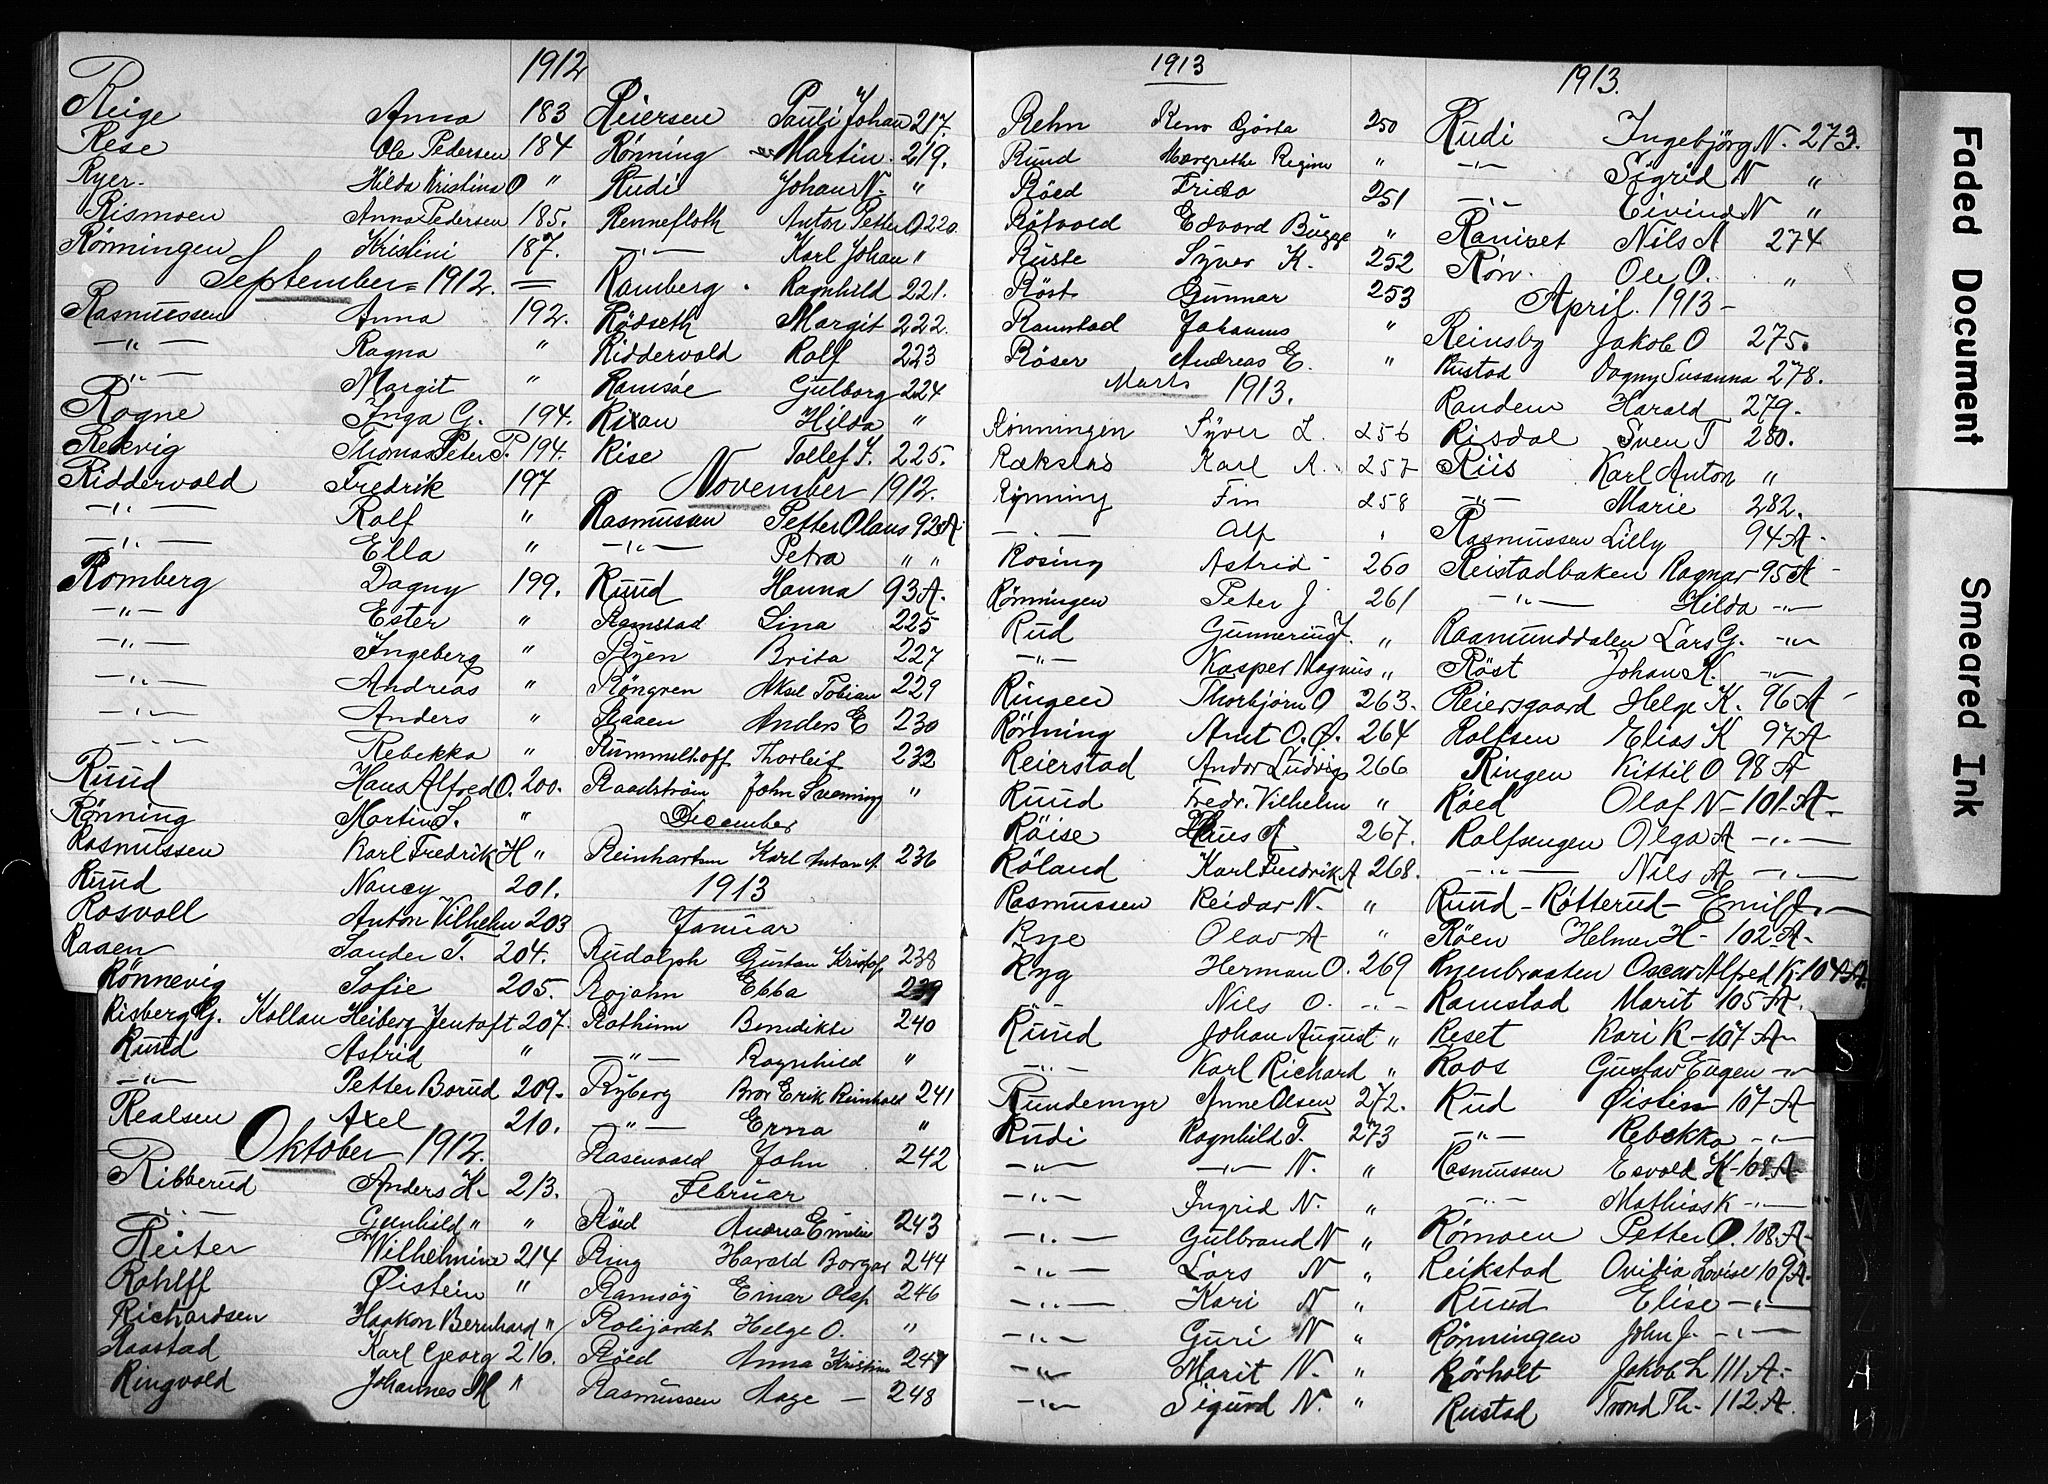 1912
Reige Anna 183
Rese Ole Pedersen 184
Ryer. Hilda Kristina O "
Rismoen Anna Pedersen 185.
Rönningen Kristini 187.
September = 1912. =
Rasmussen Anna 192.
—"— Ragna "
—"— Margit "
Rogne Inga G. 194.
Rekvig Thomas Peter P. 194.
Riddervold Fredrik 197
—"— Rolf "
—"— Ella "
Romberg Dagny 199.
—"— Ester "
—"— Ingeberg "
—"— Andreas "
—"— Anders "
—"— Rebekka "
Ruud Hans Alfred O. 200.
Rönning Martin S. "
Rasmussen Karl Fredrik H "
Ruud Nancy 201.
Rosvoll Anton Vilhelm 203
Raaen Sander T. 204.
Rönnevig Sofie 205.
Risberg G. Kollau Heiberg Jentoft 207.
Ruud Astrid "
—"— Petter Borud 209.
Realsen Axel 210.
Oktober 1912.
Ribberud Anders H. 213.
—"— Gunhild " "
Reiter Wilhelmine 214
Rohlff Øistein "
Richardsen Haakon Bernhard "
Raastad Karl Georg 216.
Ringvold Johannes M "
Reiersen Pauli Johan 217.
Rönning Martin. 219.
Rudi Johan N. "
Rennefloth Anton Petter O 220.
—"— Karl Johan "
Ramberg. Ragnhild 221.
Rödseth Margit 222.
Riddervold Rolf 223
Ramsöe Gulborg 224
Rixan Hilda "
Rise Tollef J. 225.
November 1912.
Rasmussen Petter Olaus 92A.
—"— Petra " "
Ruud Hanna 93A.
Ramstad Lina 225
Ryen Brita 227
Röngren Aksel Tobian 229
Raaen Anders E 230
Rummelhoff Thorleif 232
Raadström John Svenning "
December
Reinhartsen Karl Anton A. 236
1913
Januar
Rudolph Gustav Kristof 238
Rojahn Ebba 239
Rathim Benedikte 240
—"— Ragnhild "
Ryberg Bror Erik Reinhold 241
—"— Erna "
Rasenvald John 242
Februar
Röed Andrea Emilie 243
Ring Harald Borgar 244
Ramsöy Einar Olaf 246
Rolijordet Helge O. "
Röed Anna Kristine 247
Rasmussen Aage — 248
1913
Rehn Keno Gjösta 250
Rund Margrethe Regine "
Röed Frida 251
Rötvold Edvard Bugge "
Ruste Syver K. 252
Röst Gunnar 253
Ramstad Johannes "
Röser Andreas E. "
Marts 1913.
Rönningen Syver L. 256
Rækstas Karl A. 257
Rynning Fin 258
—"— Alf "
Rosing Astrid 260
Rönningen Peter J 261
Rud Gunnerius J. "
—"— Kasper Magnus "
Ringen Thorbjörn O 263.
Rönning Arnt O. O. 264
Reierstad Andor Ludvig 266
Ruud Fredr. Vilhelm "
Röise Hans A 267.
Röland Karl Fredrik A 268.
Rasmussen Reidar N. "
Rye Olav A "
Ryg Herman O. 269
Nils O. —"—
Ruud Johan August "
—"— Karl Richard "
Rundemyr Anne Olsen 272.
Rudi Ragnhild T. 273
—"— —"— N. "
—"— Ingrid N. "
—"— Gulbrand N "
—"— Lars N "
—"— Kari N "
—"— Guri N "
—"— Marit N. "
—"— Sigurd N. "
1913.
Rudi Ingebjörg N. 273.
—"— Sigrid N "
—"— Eivind N "
Raniset Nils A 274
Røn. Ole O. "
April. 1913 -
Reinsby Jakob O 275.
Rustad Dagny Susanna 278.
Randem Harald 279.
Risdal Sven T 280.
Riis Karl Anton "
—"— Marie 282.
Rasmussen Lilly 94A -
Reistadbaken Ragnar 95A -
—"— Hilda —"—
Raamunddalen Lars G. —"—
Röst Johan K. —"—
Reiersgaard Helge K. 96A -
Rolfsen Elias K 97A
Ringen Kittil O 98A
Röed Olaf N - 101.A.
Rolfsengen Olga A —"—
—"— Nils A —"—
Ruud - Rötterud - Emil J. —
Röen Helmer H - 102A.
Ruenbraaten Oscar Alfred K. 104A.
Ramstad Marit 105A.
Reset Kari K - 107A -
Roos Gustav Eugen —"—
Rud Øistein 107A
—"— Rebekka —"—
Rasmussen Esvald K - 108A
—"— Mathias K —"—
Römoen Petter O. 108.A -
Reikstad Ovidia Lovise 109A -
Ruud Elise —"—
Rönningen John J. —"—
Rörholt Jakob L 111A -
Rustad Trond Th - 112.A.
Faded Document
Smeared Ink